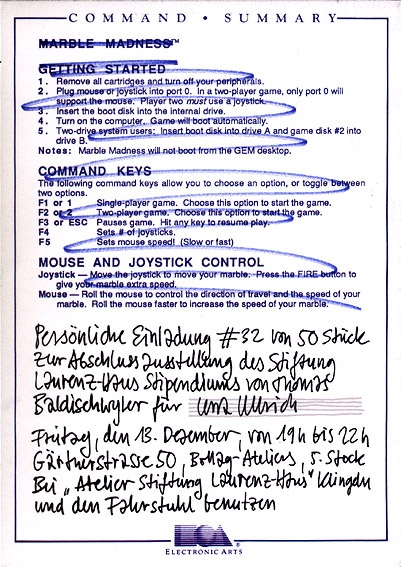 COMMAND • SUMMARY
MARBLE MADNESS™
GETTING STARTED
1. Remove all cartridges and turn off your peripherals.
2. Plug mouse or joystick into port 0. In a two-player game, only port 0 will
support the mouse. Player two must use a joystick.
3. Insert the boot disk into the internal drive.
4. Turn on the computer. Game will boot automatically.
5. Two-drive system users: Insert boot disk into drive A and game disk #2 into
drive B.
Notes: Marble Madness will not boot from the GEM desktop.
COMMAND KEYS
The following command keys allow you to choose an option, or toggle between
two options.
F1 or 1 Single-player game. Choose this option to start the game.
F2 or 2 Two-player game. Choose this option to start the game.
F3 or ESC Pauses game. Hit any key to resume play.
F4 Sets # of joysticks.
F5 Sets mouse speed! (Slow or fast)
MOUSE AND JOYSTICK CONTROL
Joystick — Move the joystick to move your marble. Press the FIRE button to
give your marble extra speed.
Mouse — Roll the mouse to control the direction of travel and the speed of your
marble. Roll the mouse faster to increase the speed of your marble.
Persönliche Einladung #32 von 50 Stück
zur Abschlussausstellung des Stiftung
Laurenz-Haus Stipendiums von Thomas
Baldischwyler für Ulrich
Freitag, den 13. Dezember, von 19h bis 22h
Gärtnerstrasse 50, Bollag-Ateliers, 5. Stock
Bei „Atelier Stiftung Laurenz-Haus" klingeln
und den Fahrstuhl benutzen
ELECTRONIC ARTS®